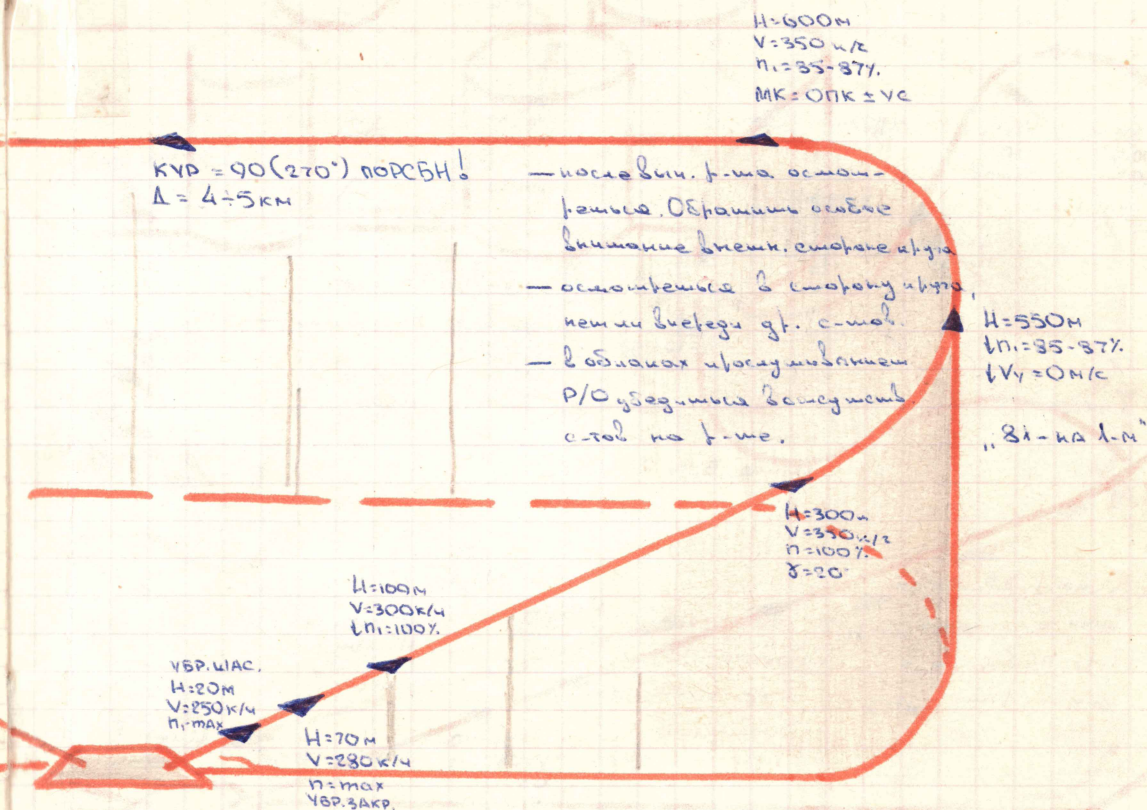 H=600м
V=350 к/г
n₁=85-87%
МК=ОПК ± УС
КУР = 90(270°) ПОРСБН!
Д = 4÷5 км
— после вып. р-та осмот-
реться. Обратить особое
внимание внешн. стороне круга
— осмотреться в сторону круга,
нет ли впереди др. с-тов.
— в облаках прослушиванием
Р/О убедиться в отсутств.
с-тов на р-те.
H=550м
↓n₁=85-87%
↓Vy=0м/с
„81-на 1-м"
H=300м
V=350к/г
n=100%
γ=20
H=100м
V=300к/ч
↓n₁=100%
УБР.ШАС.
H=20м
V=250к/ч
n₁-max
H=70м
V=280к/ч
n=max
УБР.ЗАКР.